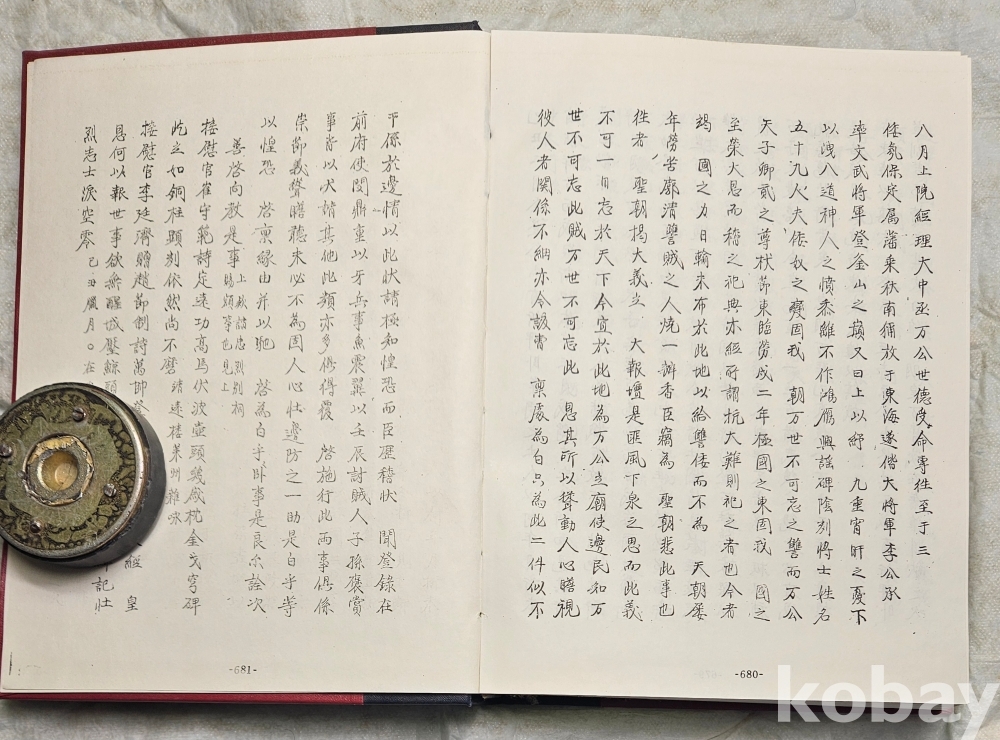 八月上院經理大中丞万公世德受命專徃至于三
倭氛保定属藩乗秋南稱放于東海遂偕大將軍李公承
率文武將軍登釜山之巔又曰上以紓九重宵旰之憂下
以洩八道神人之憤忝離不作鴻雁興謠碑陰刻將士姓名
五十九人夫倭奴之變固我朝万世不可忘之讐而万公
天子卿貳之尊杖節東臨勞戍二年極國之東固我國之
至榮大恩而稱之祀典亦經所謂抗大難則祀之者也今者
竭國之力日輸米布於此地以給讐倭而不為天朝屡
年勞苦廓清讐賊之人燒一瓣香臣竊為聖朝悲此事也
徃者聖朝揭大義立大報壇是匪風下泉之思而此義
不可一日忘於天下今宜於此地為万公立廟使邊民知万
世不可忘此賊万世不可忘此恩其所以聳動人心瞻視
彼人者関係不細亦令該曹禀處為白只為此二件似不
-680-
干係於邊情以此狀請極知惶恐而臣歴稽狀聞登錄在
前府使閔鼎重以牙兵事魚震翼以壬辰討賊人子孫褒賞
事皆以大請其他此類亦多倏得覆啓施行此両事俱係
崇節義聳瞻聽未必不為固人心壮邊防之一助是白乎等
以惶恐啓禀緣由并以馳啓為白乎卧事是良尒詮次
善啓向敎是事
接慰官崔守範詩定遠功高馬伏波壺頭幾廠枕金戈穹碑
屹立如銅柱顕刻依然尚不磨靖遠樓萊州雜咏
接慰官李廷濟贈趙節制詩萬
皇
恩何以報世事欲無醒城壓鯨頭
記壮
烈志士淚空零己丑臘月
-681-
kobay